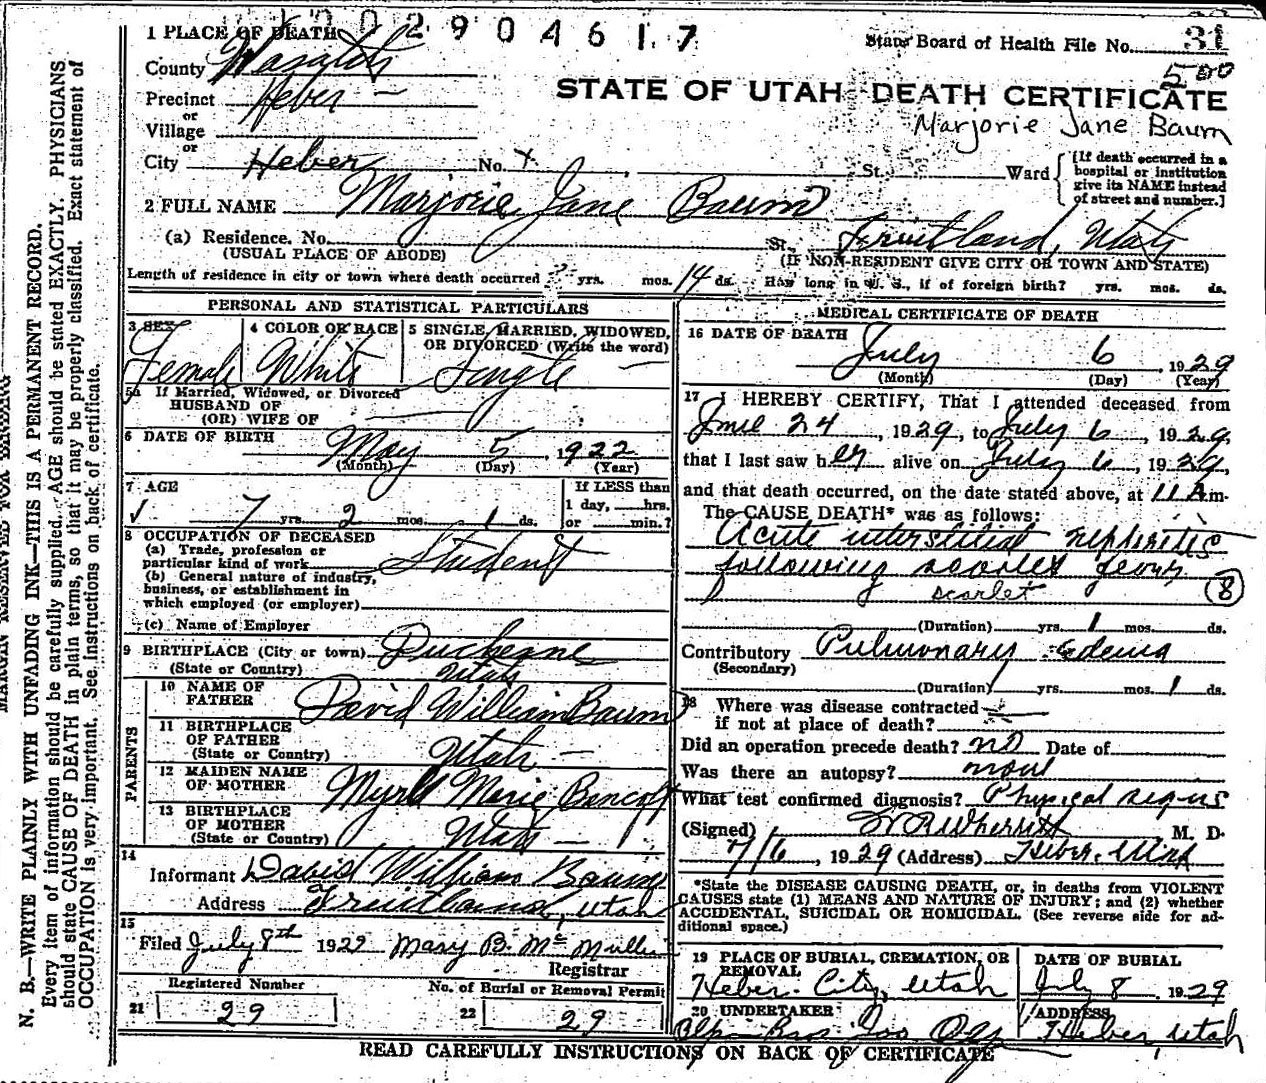 002904617
1 PLACE OF DEATH
State Board of Health File No. 31
County Wasatch
500
Precinct Heber —
STATE OF UTAH DEATH CERTIFICATE
or
Village
Marjorie Jane Baum
or
City Heber No. St. Ward
[If death occurred in a hospital or institution give its NAME instead of street and number.]
2 FULL NAME Marjorie Jane Baum
(a) Residence. No. St. Fruitland, Utah
(USUAL PLACE OF ABODE) (IF NON-RESIDENT GIVE CITY OR TOWN AND STATE)
Length of residence in city or town where death occurred yrs. mos. 14 ds. How long in U. S., if of foreign birth? yrs. mos. ds.
PERSONAL AND STATISTICAL PARTICULARS
3 SEX 4 COLOR OR RACE 5 SINGLE, MARRIED, WIDOWED, OR DIVORCED (Write the word)
Female White Single —
5a If Married, Widowed, or Divorced
HUSBAND OF
(OR) WIFE OF
6 DATE OF BIRTH
May 5, 1922
(Month) (Day) (Year)
7 AGE If LESS than
1 day, hrs.
7 yrs. 2 mos. 1 ds. or min.?
8 OCCUPATION OF DECEASED
(a) Trade, profession or
particular kind of work Student
(b) General nature of industry,
business, or establishment in
which employed (or employer)
(c) Name of Employer
9 BIRTHPLACE (City or town) Duchesne
(State or Country) Utah
PARENTS
10 NAME OF
FATHER David William Baum
11 BIRTHPLACE
OF FATHER
(State or Country) Utah —
12 MAIDEN NAME
OF MOTHER Myrll Marie Bancroft
13 BIRTHPLACE
OF MOTHER
(State or Country) Utah —
14
Informant David William Baum
Address Fruitland, Utah
15
Filed July 8th 1929 Mary B. McMullin
Registrar
Registered Number No. of Burial or Removal Permit
21 29 22 29
MEDICAL CERTIFICATE OF DEATH
16 DATE OF DEATH
July 6, 1929
(Month) (Day) (Year)
17 I HEREBY CERTIFY, That I attended deceased from
June 24, 1929, to July 6, 1929,
that I last saw her alive on July 6, 1929,
and that death occurred, on the date stated above, at 11 A.m.
The CAUSE DEATH* was as follows:
Acute interstitial nephritis
following scarlet fever
scarlet 8
(Duration) yrs. 1 mos. ds.
Contributory Pulmonary Edema
(Secondary)
(Duration) yrs. mos. 1 ds.
18 Where was disease contracted
if not at place of death?
Did an operation precede death? no Date of
Was there an autopsy? none
What test confirmed diagnosis? Physical signs
(Signed) W R Wherritt M. D.
7/6, 1929 (Address) Heber, Utah
*State the DISEASE CAUSING DEATH, or, in deaths from VIOLENT
CAUSES state (1) MEANS AND NATURE OF INJURY; and (2) whether
ACCIDENTAL, SUICIDAL OR HOMICIDAL. (See reverse side for ad-
ditional space.)
19 PLACE OF BURIAL, CREMATION, OR REMOVAL DATE OF BURIAL
Heber City, Utah July 8 1929
20 UNDERTAKER ADDRESS
Heber, Utah
READ CAREFULLY INSTRUCTIONS ON BACK OF CERTIFICATE
MARGIN RESERVED FOR BINDING
N. B.—WRITE PLAINLY WITH UNFADING INK—THIS IS A PERMANENT RECORD.
Every item of information should be carefully supplied. AGE should be stated EXACTLY. PHYSICIANS
should state CAUSE OF DEATH in plain terms, so that it may be properly classified. Exact statement of
OCCUPATION is very important. See instructions on back of certificate.